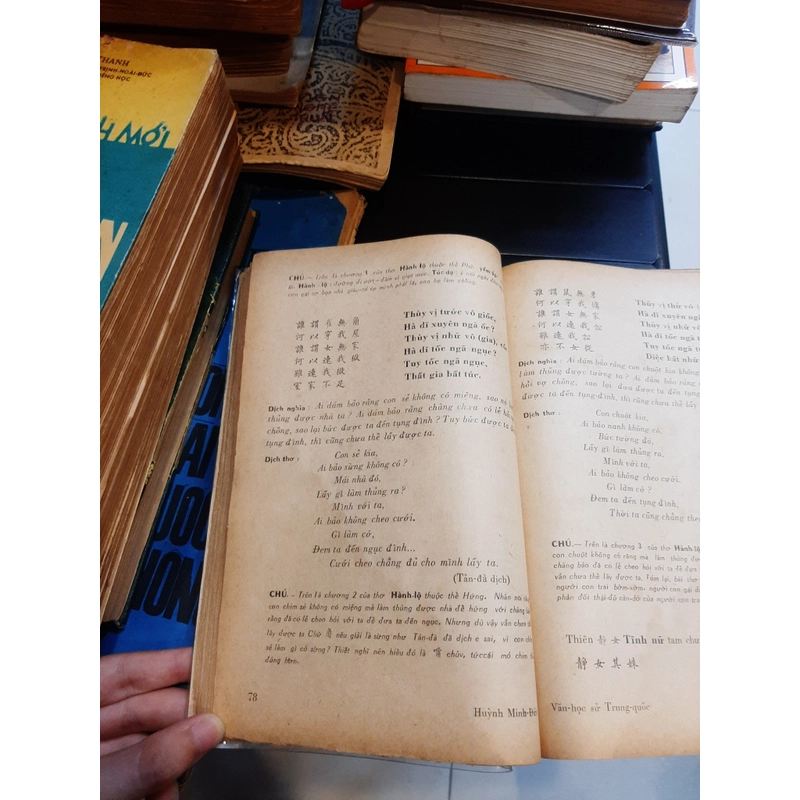 THANH
TRỊNH-HOÀI-ĐỨC
MỚI
CHÚ.— Trên là chương 1 của thơ Hành-lộ thuộc thể Phú.
誰 謂 雀 無 角
何 以 穿 我 屋
誰 謂 女 無 家
何 以 速 我 獄
雖 速 我 獄
室 家 不 足
Thùy vị tước vô giốc,
Hà dĩ xuyên ngã ốc ?
Thùy vị nhữ vô (gia),
Hà dĩ tốc ngã ngục ?
Tuy tốc ngã ngục,
Thất gia bất túc.
Dịch nghĩa : Ai dám bảo rằng con sẻ không có miệng, sao nó
thủng được nhà ta ? Ai dám bảo rằng chàng chưa có lễ hỏi
chồng, sao lại bức được ta đến tụng đình ? Tuy bức được ta
tụng đình, thì cũng chưa thể lấy được ta.
Dịch thơ :
Con sẻ kia,
Ai bảo sừng không có ?
Mái nhà đó,
Lấy gì làm thủng ra ?
Mình với ta,
Ai bảo không cheo cưới.
Gì làm cớ,
Đem ta đến ngục đình...
Cưới cheo chẳng đủ cho mình lấy ta.
(Tản-đà dịch)
CHÚ.— Trên là chương 2 của thơ Hành-lộ thuộc thể Hứng.
con chim sẻ không có miệng mà làm thủng được nhà để hứng với chàng
rằng đã có lễ cheo hỏi với ta để đưa ta đến ngục. Nhưng dù vậy vẫn chưa
lấy được ta Chữ 角 nếu giải là sừng như Tản-đà đã dịch e sai, vì con
sẻ làm gì có sừng ? Thiết nghĩ nên hiểu đó là 嘴 chủy, tức cái mỏ chim
đúng hơn.
78
Huỳnh Minh-Đức
誰 謂 鼠 無 牙
何 以 穿 我 墉
誰 謂 女 無 家
何 以 速 我 訟
雖 速 我 訟
亦 不 女 從
Thùy vị thử vô
Hà dĩ xuyên ngã
Thùy vị nhữ vô
Hà dĩ tốc ngã
Tuy tốc ngã
Diệc bất nhữ
Dịch nghĩa : Ai dám bảo rằng con chuột không
làm thủng được tường ta ? Ai dám
hỏi vợ chồng, sao lại đưa được ta đến
ta đến tụng-đình, thì cũng chưa thể lấy
Dịch thơ :
Con chuột kia,
Ai bảo nanh không có.
Bức tường đó,
Lấy gì làm thủng ra.
Mình với ta,
Ai bảo không cheo cưới
Gì làm cớ ?
Đem ta đến tụng đình,
Thời ta cũng chẳng theo
CHÚ.— Trên là chương 3 của thơ Hành-lộ
con chuột không có răng mà làm thủng được
chàng bảo đã có lễ cheo hỏi với ta để đưa
vẫn chưa thể lấy được ta. Tóm lại, bài thơ
con trai bờm-xờm, người con gái
phản đối thái-độ của người con trai
Thiên 靜 女 Tĩnh nữ tam chương
靜 女 其 姝
Văn-học sử Trung-quốc